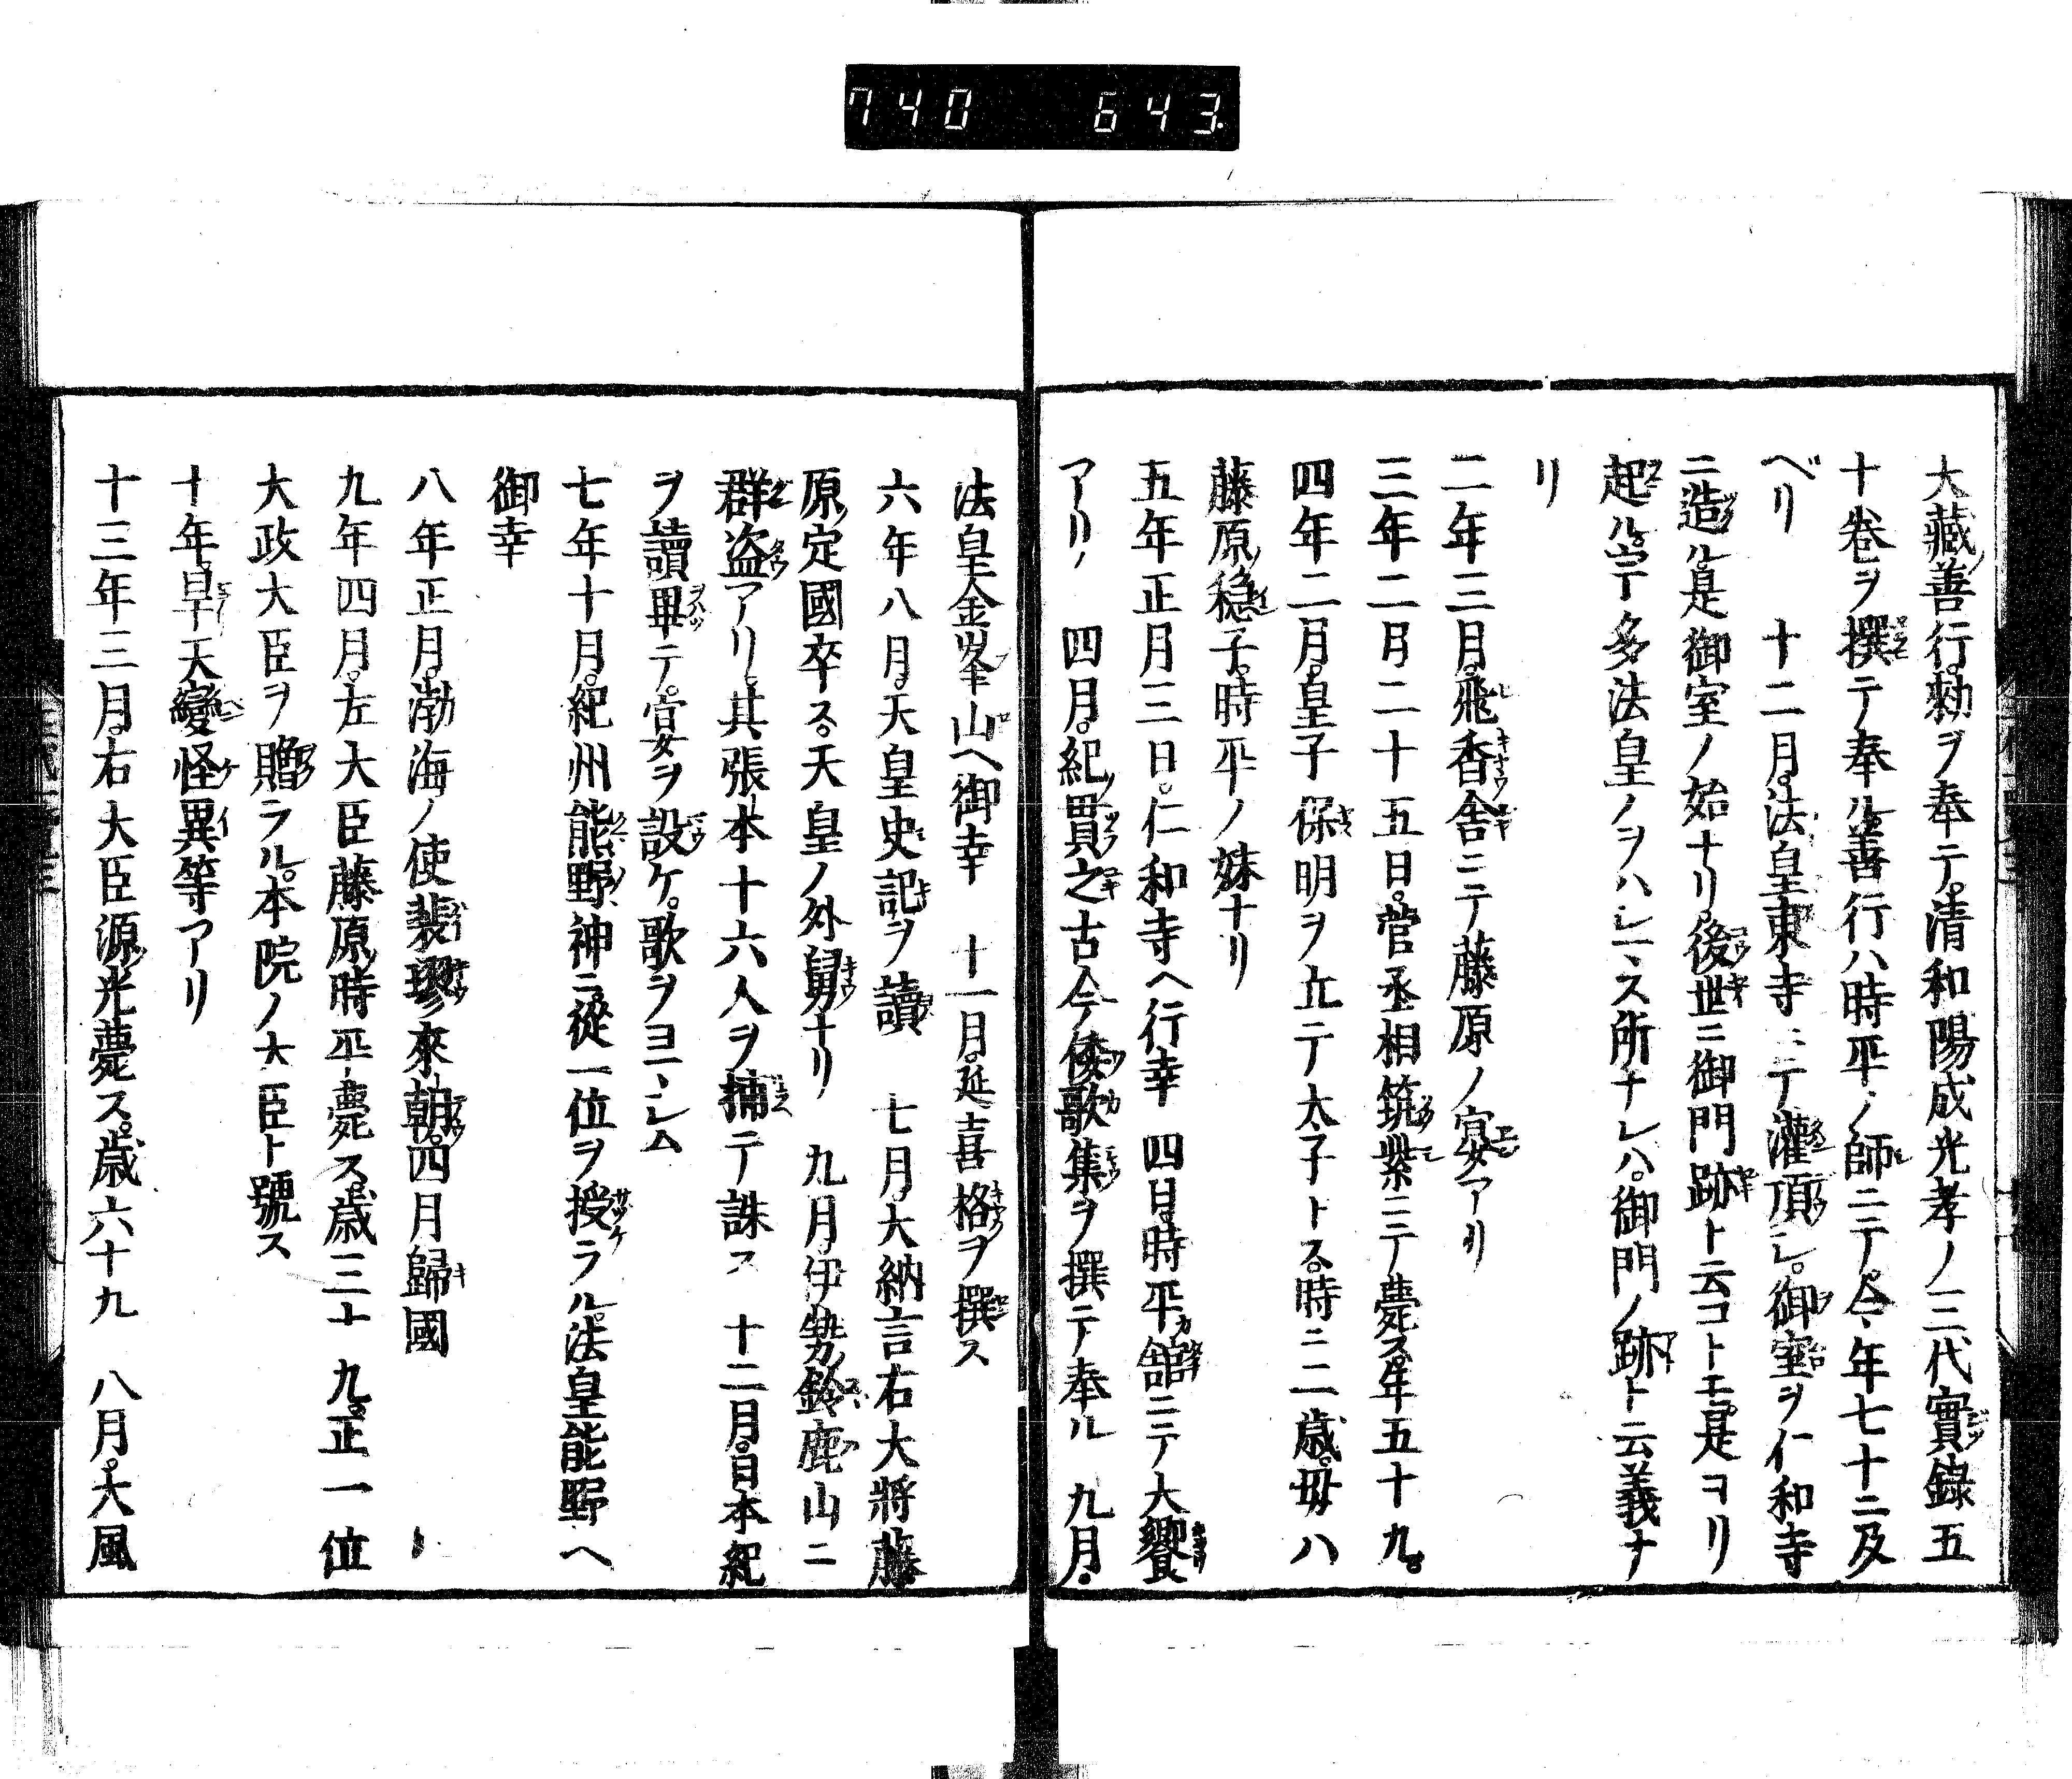 740 643.
大藏善行。勅ヲ奉テ。清和陽成光孝ノ三代實錄五
十巻ヲ撰テ奉ル。善行ハ時平ノ師ニテ。今年七十二及
ベリ 十二月。法皇東寺ニテ灌頂シ。御室ヲ仁和寺
ニ造ル。是御室ノ始ナリ。後世ニ御門跡ト云コトモ。是ヨリ
起ル。宇多法皇ノヲハシマス所ナレハ。御門ノ跡ト云義ナ
リ
二年三月。飛香舎ニテ藤原ノ宴アリ
三年二月二十五日。菅丞相筑紫ニテ薨ス。年五十九。
四年二月。皇子保明ヲ立テ太子トス。時ニ二歳。母ハ
藤原穏子。時平ノ妹ナリ
五年正月三日。仁和寺ヘ行幸 四日。時平カ舘ニテ大饗
アリ 四月。紀貫之古今倭歌集ヲ撰テ奉ル 九月。
法皇金峯山ヘ御幸 十一月。延喜格ヲ撰ス
六年八月。天皇史記ヲ讀 七月。大納言右大將藤
原定國卒ス。天皇ノ外舅ナリ 九月伊勢鈴鹿山ニ
群盗アリ。其張本十六人ヲ捕テ誅ス 十二月。日本紀
ヲ讀畢テ。宴ヲ設ケ。歌ヲヨマシム
七年十月。紀州熊野神ニ從一位ヲ授ラル。法皇熊野ヘ
御幸
八年正月。渤海ノ使裴璆來朝。四月歸國
九年四月。左大臣藤原時平薨ス。歳三十九。正一位
大政大臣ヲ贈ラル。本院ノ大臣ト號ス
十年。旱天變怪異等アリ
十三年三月。右大臣源光薨ス。歳六十九 八月。大風